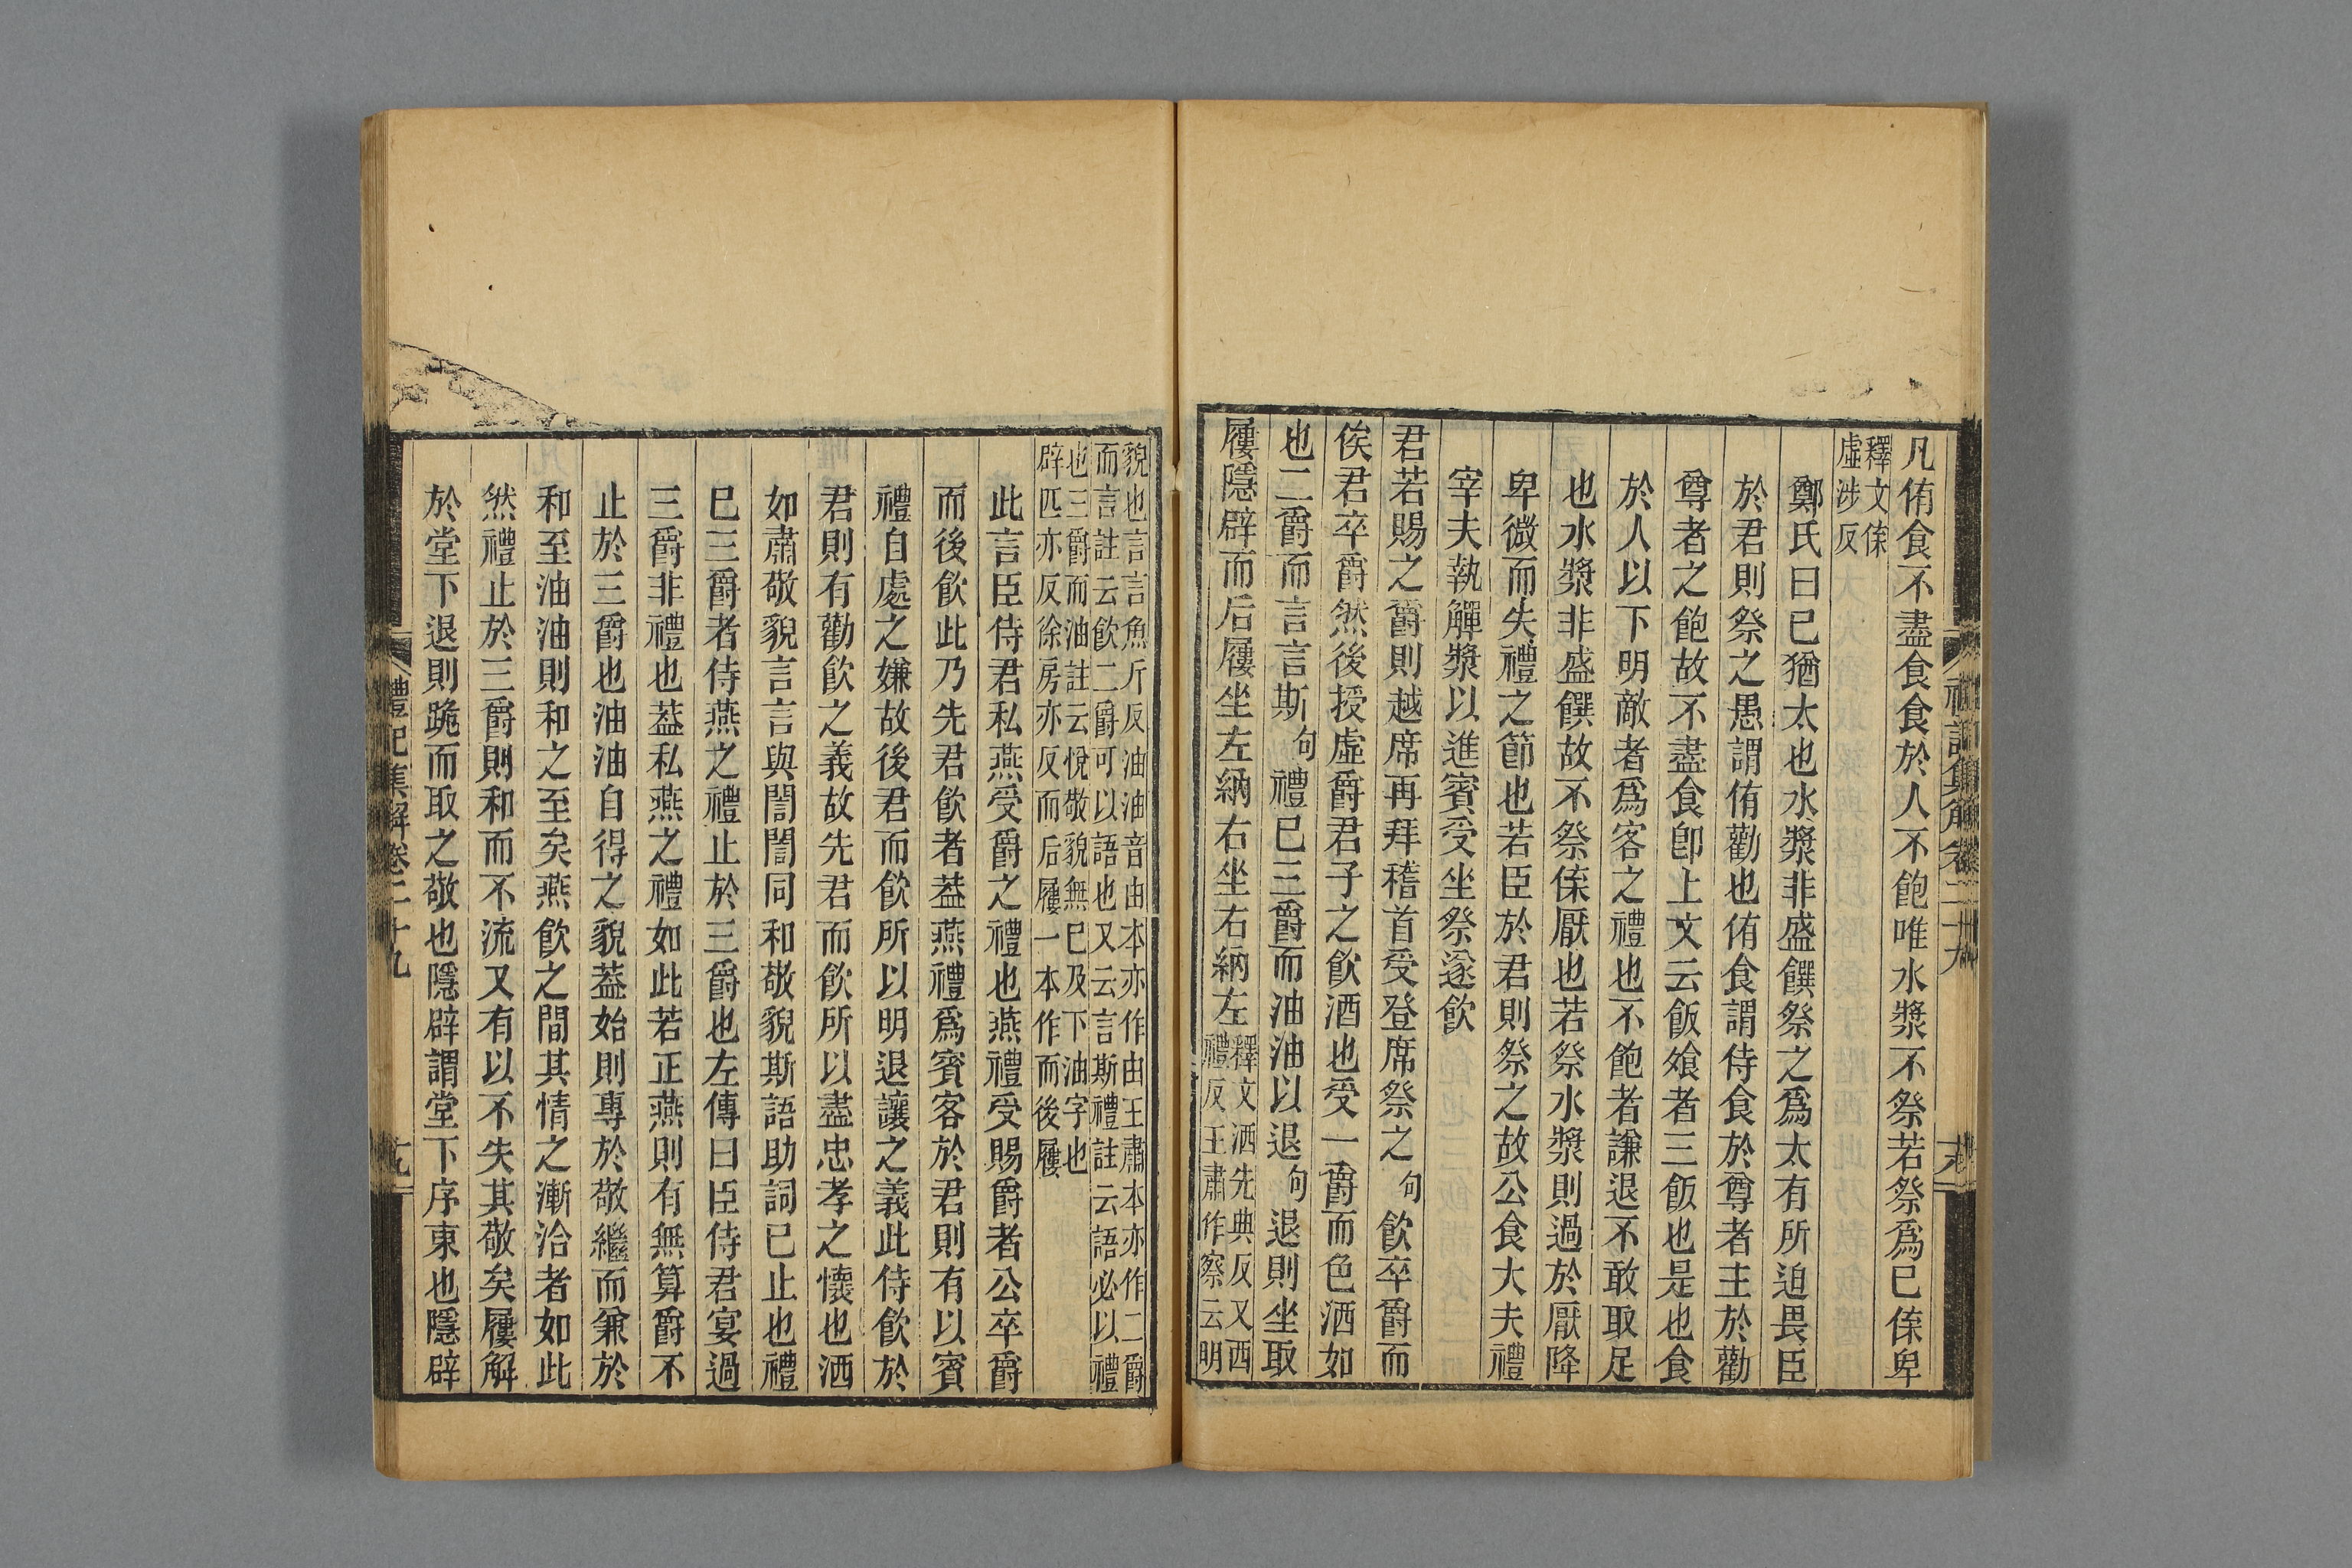 凡侑食不盡食食於人不飽唯水漿不祭若祭爲已傃卑
釋文傃
虛涉反
鄭氏曰已猶太也水漿非盛饌祭之爲太有所迫畏臣
於君則祭之愚謂侑勸也侑食謂侍食於尊者主於勸
尊者之飽故不盡食卽上文云飯飧者三飯也是也食
於人以下明敵者爲客之禮也不飽者謙退不敢取足
也水漿非盛饌故不祭傃厭也若祭水漿則過於厭降
卑微而失禮之節也若臣於君則祭之故公食大夫禮
宰夫執觶漿以進賓受坐祭遂飲
君若賜之爵則越席再拜稽首受登席祭之句飲卒爵而
俟君卒爵然後授虛爵君子之飲酒也受一爵而色洒如
也二爵而言言斯句禮已三爵而油油以退句退則坐取
屨隱辟而后屨坐左納右坐右納左
釋文洒先典反又西
禮反王肅作察云明
貌也言言魚斤反油油音由本亦作由王肅本亦作二爵
而言註云飲二爵可以語也又云言斯禮註云語必以禮
也三爵而油註云悅敬貌無已及下油字也
辟匹亦反徐房亦反而后屨一本作而後屨
此言臣侍君私燕受爵之禮也燕禮受賜爵者公卒爵
而後飲此乃先君飲者葢燕禮爲賓客於君則有以賓
禮自處之嫌故後君而飲所以明退讓之義此侍飲於
君則有勸飲之義故先君而飲所以盡忠孝之懷也洒
如肅敬貌言言與誾誾同和敬貌斯語助詞已止也禮
已三爵者侍燕之禮止於三爵也左傳曰臣侍君宴過
三爵非禮也葢私燕之禮如此若正燕則有無算爵不
止於三爵也油油自得之貌葢始則專於敬繼而兼於
和至油油則和之至矣燕飲之間其情之漸洽者如此
然禮止於三爵則和而不流又有以不失其敬矣屨解
於堂下退則跪而取之敬也隱辟謂堂下序東也隱辟
禮記集解卷二十九